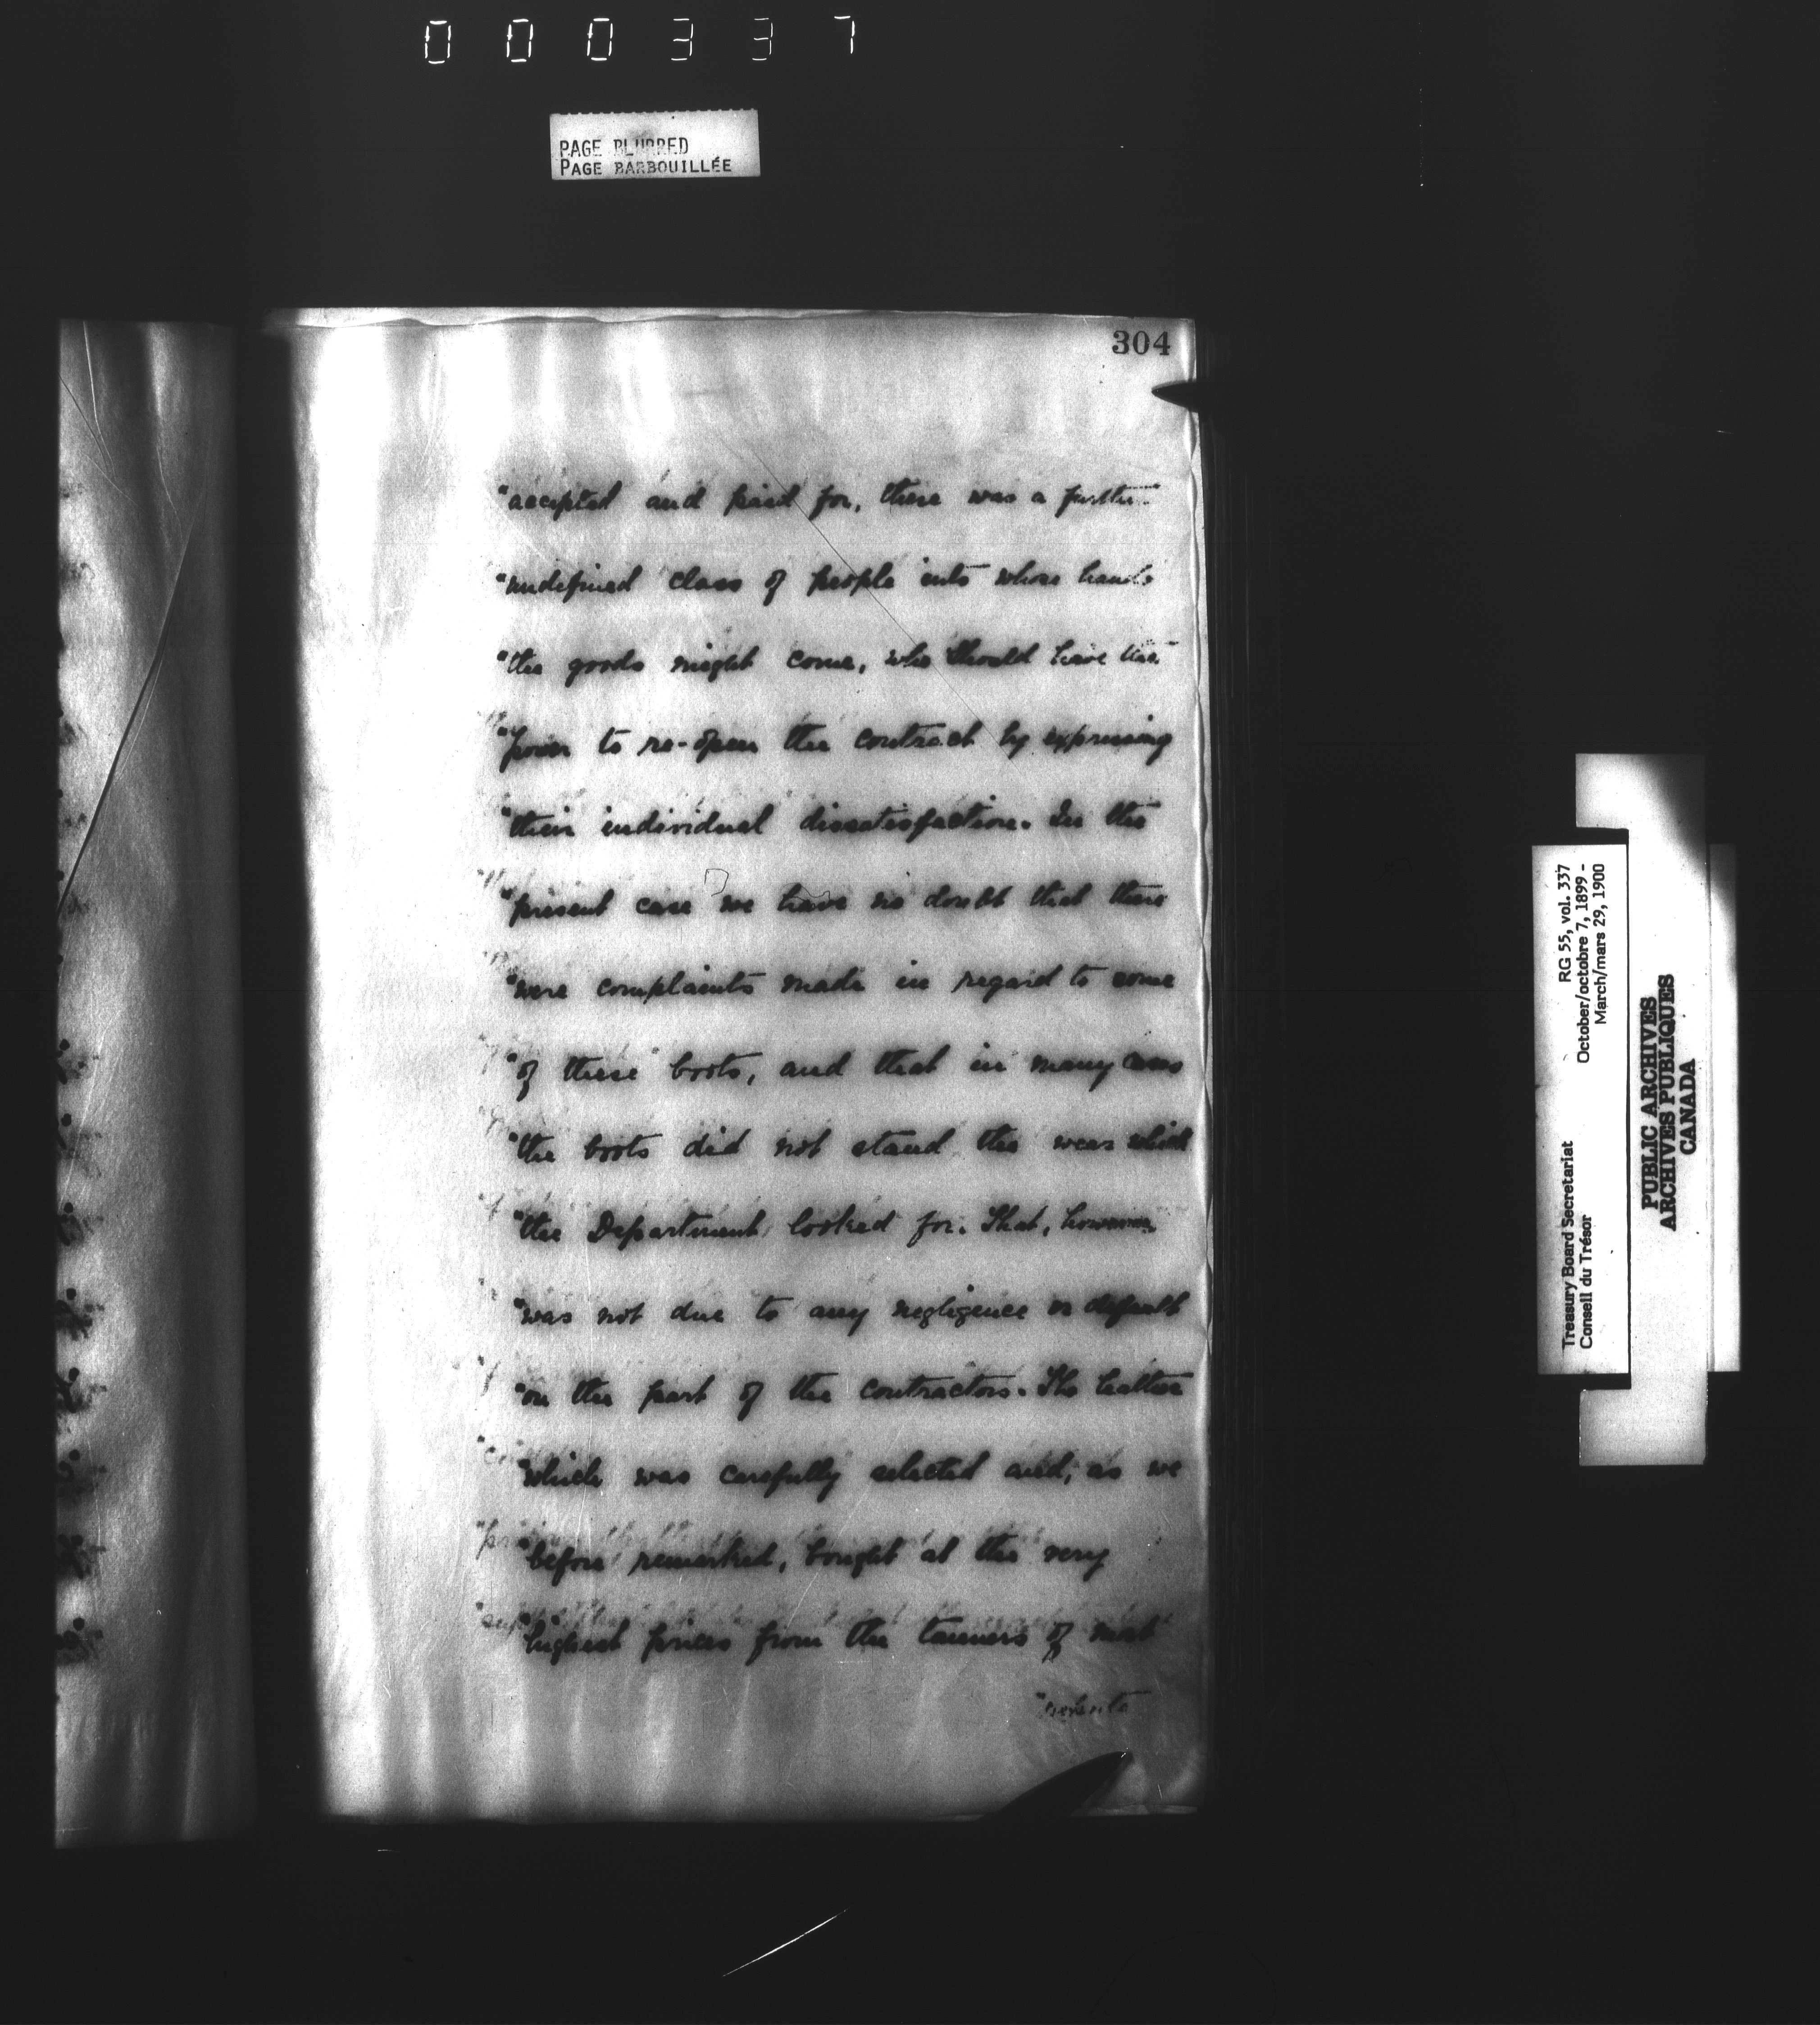 000337
PAGE BLURRED
PAGE BARBOUILLÉE
304
"accepted and paid for, there was a further
"undefined class of people into whose hands
"the goods might come, who should have the
"power to re-open the contract by expressing
"their individual dissatisfaction. In the
"present case we have no doubt that there
"were complaints made in regard to some
"of these boots, and that in many cases
"the boots did not stand the wear which
"the Department looked for. That, however,
"was not due to any negligence or default
"on the part of the contractors. The leather
"which was carefully selected and, as we
"before remarked, bought at the very
"highest prices from the tanners of most
RG 55, vol. 337
October/octobre 7, 1899 -
March/mars 29, 1900
Treasury Board Secretariat
Conseil du Trésor
PUBLIC ARCHIVES
ARCHIVES PUBLIQUES
CANADA